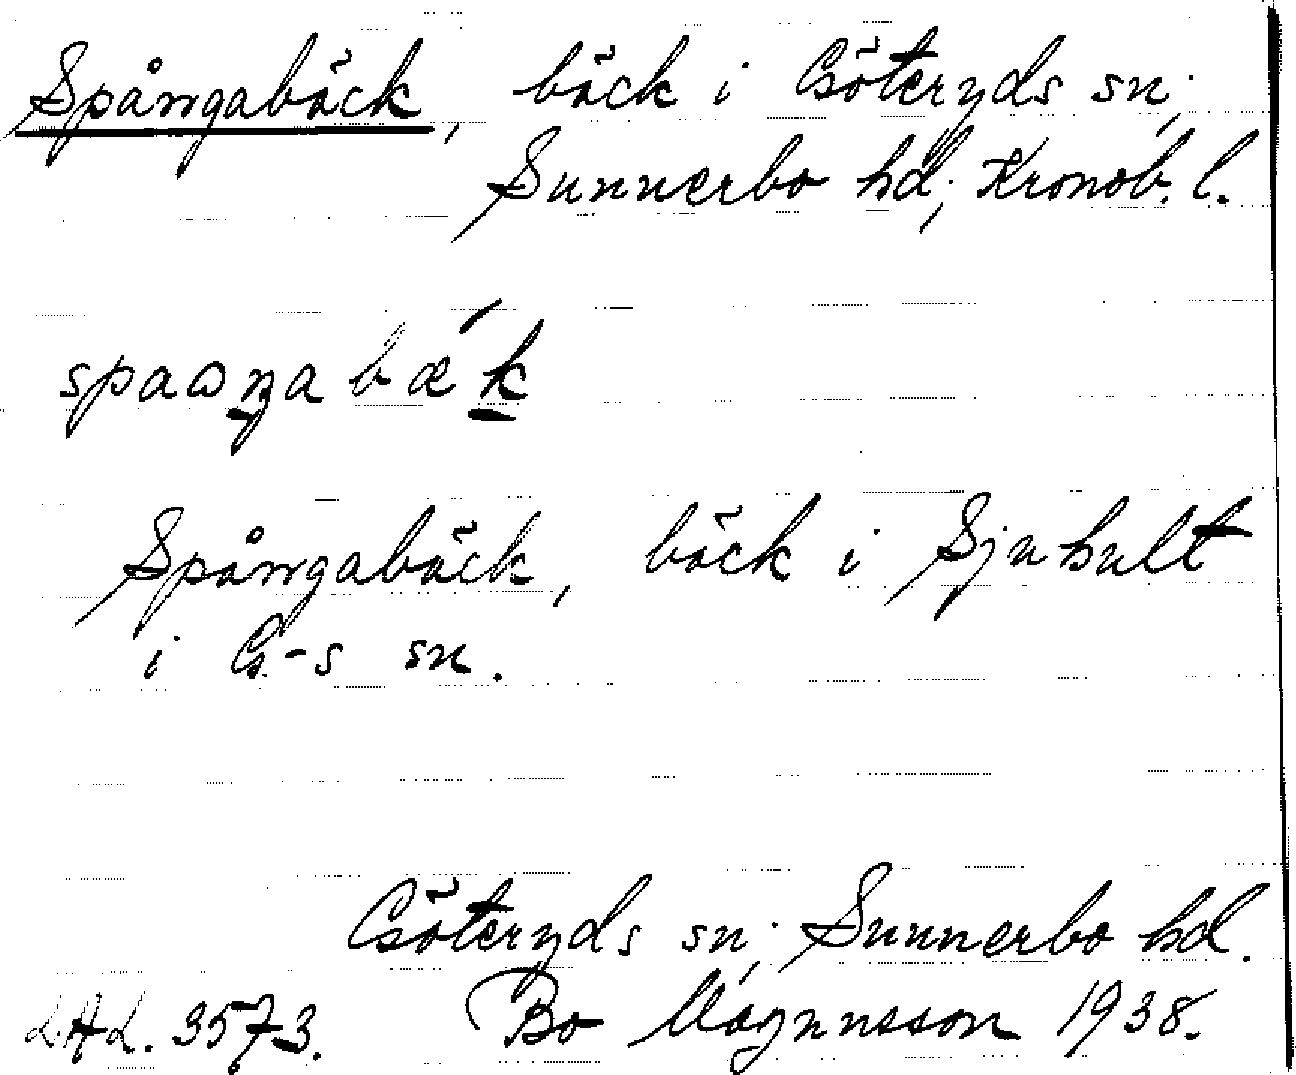 Spångabäck, bäck i Göteryds sn,
Sunnerbo hd, Kronob. l.
spaωŋabæ´k
Spångabäck, bäck i Sjuhult
i G.-s sn.
Göteryds sn, Sunnerbo hd.
LAL. 3573. Bo Magnusson 1938.